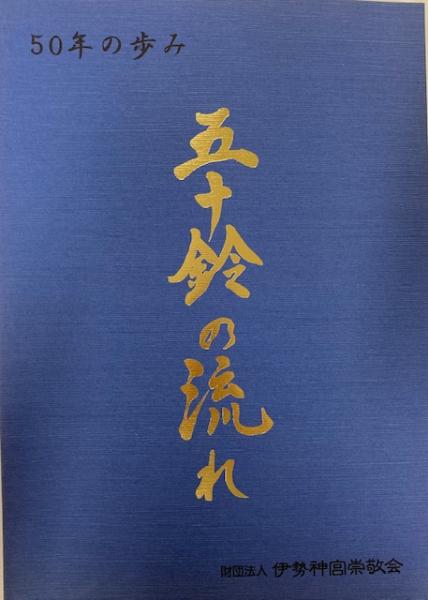 50年の歩み
五十鈴の流れ
財団法人 伊勢神宮崇敬会